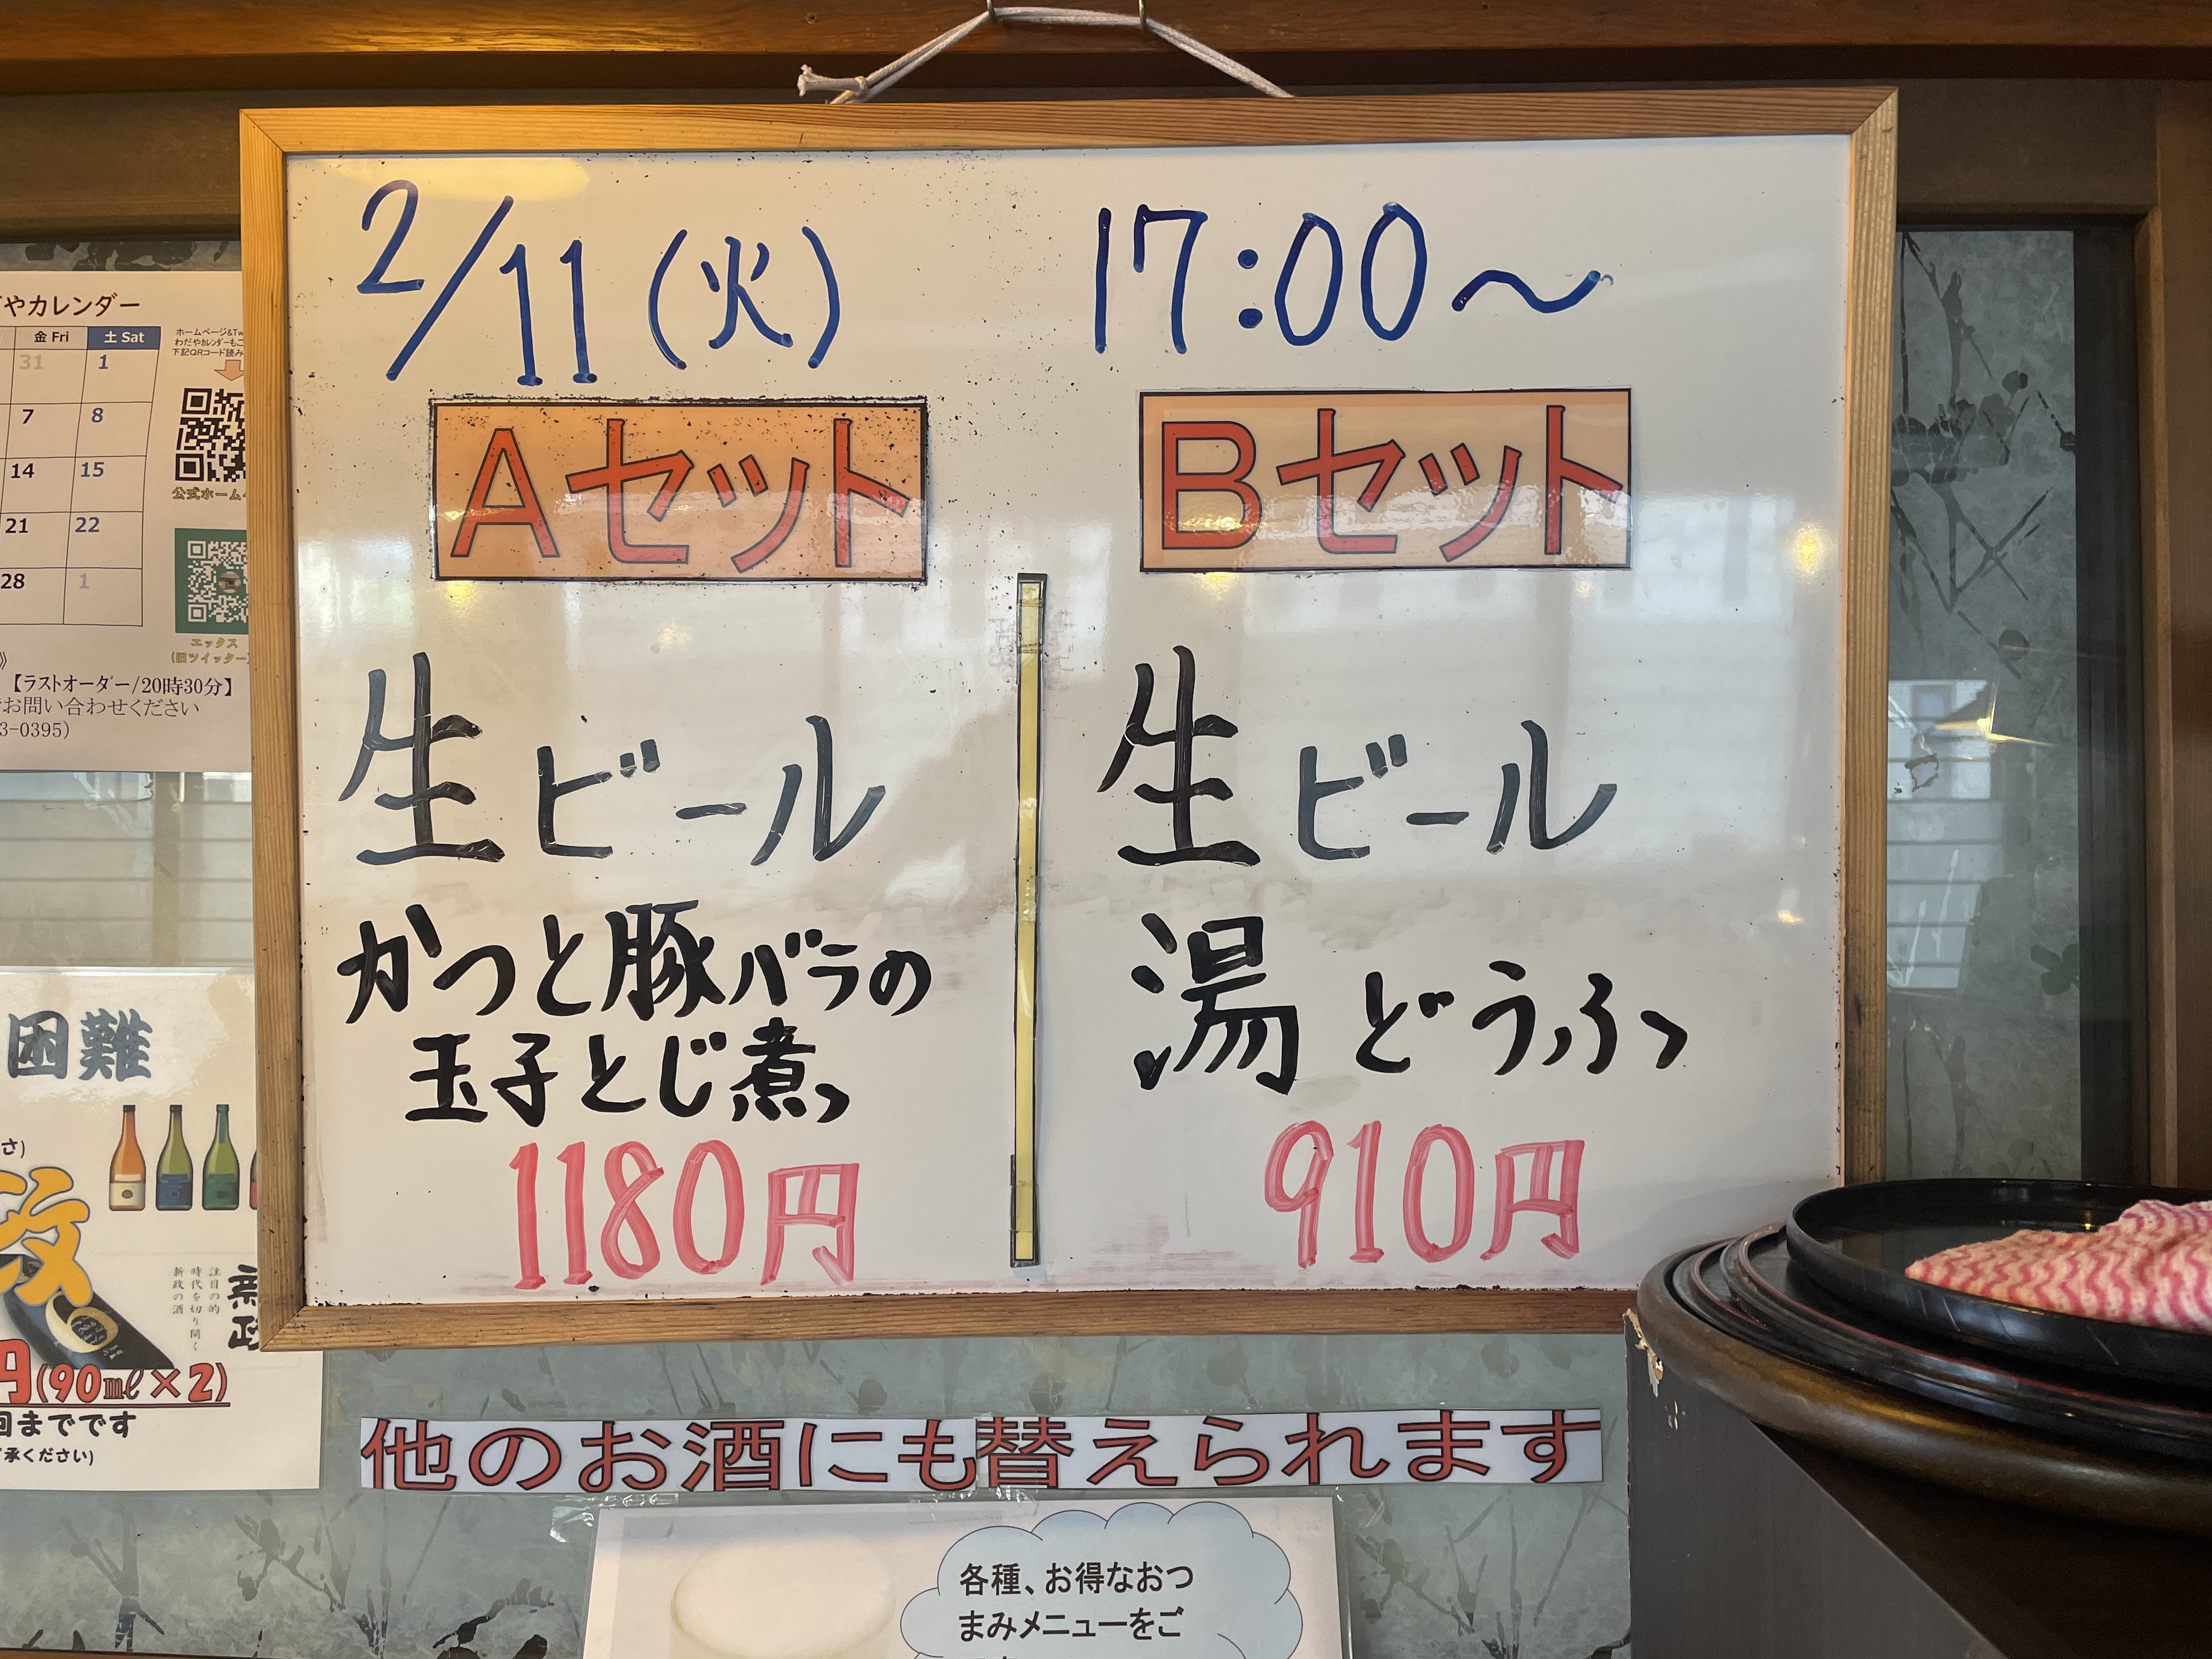 2/11(火) 17:00〜
Aセット
生ビール
かつと豚バラの
玉子とじ煮
1180円
Bセット
生ビール
湯どうふ
910円
他のお酒にも替えられます
各種、お得なおつ
まみメニューをご
やカレンダー
金 Fri 土 Sat
31 1
7 8
14 15
21 22
28 1
ホームページ&Tw
わだやカレンダーもご
下記QRコード読み
公式ホーム
エックス
(旧ツイッター)
》
【ラストオーダー/20時30分】
お問い合わせください
3-0395)
困難
さ)
政
注目の的
時代を切り開く
新政の酒
新政
円(90㎖×2)
回までです
承ください)